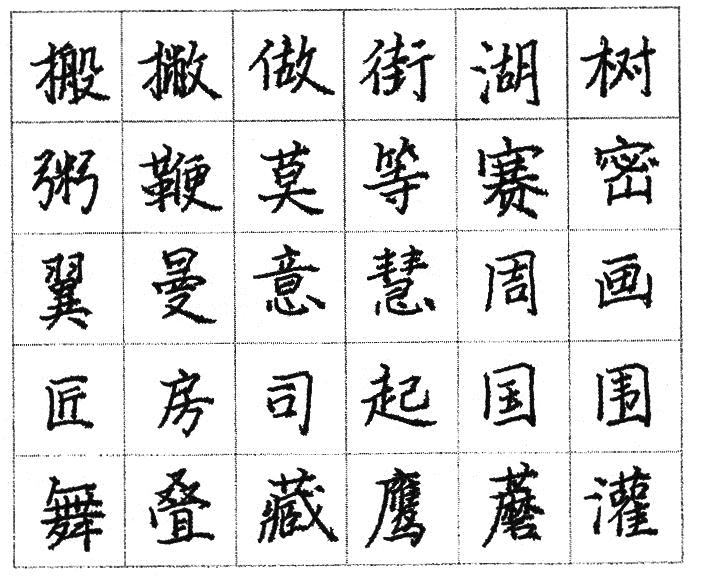 搬撇做街湖树
粥鞭莫等赛密
翼曼意慧周画
匠房司起国围
舞叠藏鹰蘑灌